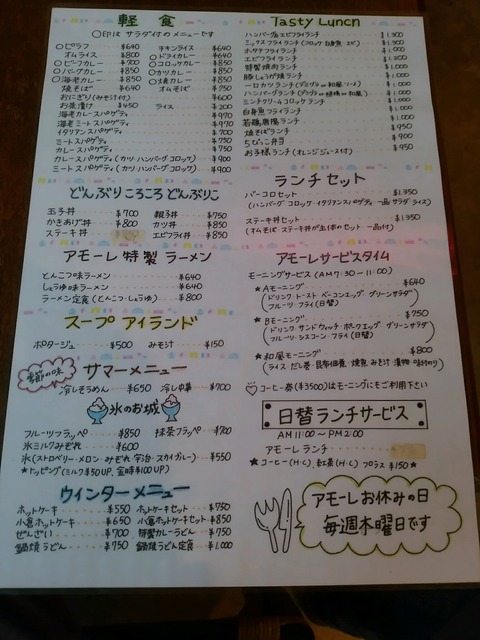 軽食
○印は サラダ付のメニューです
○ピラフ ¥640
○オムライス ¥800
○ビーフカレー ¥700
○バーグカレー ¥850
○海老カレー ¥850
焼そば ¥640
おにぎり(みそ汁付)
お茶漬け ¥450
海老カレースパゲティ ¥970
海老ミートスパゲティ ¥970
イタリアンスパゲティ ¥700
ミートスパゲティ ¥750
カレースパゲティ ¥750
カレースパゲティ(カツ ハンバーグ コロッケ) ¥900
ミートスパゲティ(カツ ハンバーグ コロッケ) ¥900
チキンライス ¥640
○ドライカレー ¥640
○コロッケカレー ¥850
○カツカレー ¥850
○焼肉カレー ¥850
オムそば ¥750
ライス ¥200
どんぶりころころ どんぶりこ
玉子丼 ¥700
かきあげ丼 ¥800
ステーキ丼
親子丼 ¥750
カツ丼 ¥850
エビフライ丼 ¥850
アモーレ 特製 ラーメン
とんこつ味ラーメン ¥640
しょうゆ味ラーメン ¥640
ラーメン定食(とんこつ・しょうゆ) ¥800
スープ アイランド
ポタージュ ¥500 みそ汁 ¥150
季節の味 サマーメニュー
冷しそうめん ¥650 冷し中華 ¥700
氷のお城
フルーツフラッペ ¥850 抹茶フラッペ ¥700
氷ミルクみぞれ ¥600
氷(ストロベリー・メロン・みぞれ 宇治・スカイカレー) ¥550
★トッピング(ミルク¥50UP. 金時¥100UP)
ウィンターメニュー
ホットケーキ ¥550 ホットケーキセット ¥750
小倉ホットケーキ ¥650 小倉ホットケーキセット ¥850
ぜんざい ¥700 特製カレーうどん ¥750
鍋焼うどん ¥750 鍋焼うどん定食 ¥1,000
Tasty Lunch
ハンバーグ店エビフライランチ ¥1,300
ミックスフライランチ(コロッケ 白身魚 エビ) ¥1,300
ホタテフライランチ ¥1,000
エビフライランチ ¥1,100
特製焼肉ランチ ¥1,000
豚しょうが焼ランチ ¥1,000
一口カツランチ(デミグラス or 和風ソース) ¥1,000
ハンバーグランチ(デミグラス or 和風ソース) ¥1,000
ミンチクリームコロッケランチ ¥1,000
白身魚フライランチ ¥1,000
若鶏唐揚ランチ ¥1,000
焼そばランチ ¥950
ちびっこ弁当 ¥900
お子様ランチ(オレンジジュース付) ¥950
ランチセット
バーコロセット ¥1,350
(ハンバーグ コロッケ イタリアンスパゲティ 一品 サラダ ライス)
ステーキ丼セット ¥1,350
(オムそば・ステーキ丼が主体のセット 一品付)
アモーレサービスタイム
モーニングサービス(AM7:30〜11:00)
★Aモーニング ¥640
(ドリンク トースト ベーコンエッグ グリーンサラダ
フルーツ フライ(日替))
★Bモーニング ¥750
(ドリンク サンドウィッチ・ポークエッグ グリーンサラダ
フルーツ・シスコーン フライ(日替))
★和風モーニング ¥800
(ライス だし巻・昆布佃煮 焼魚 みそ汁 漬物 味付のり)
♡コーヒー券(¥3500)はモーニングにもご利用下さい
日替ランチサービス
AM11:00〜PM2:00
アモーレランチ
★コーヒー(H・C). 紅茶(H・C) プラス ¥150★
アモーレお休みの日
毎週木曜日です